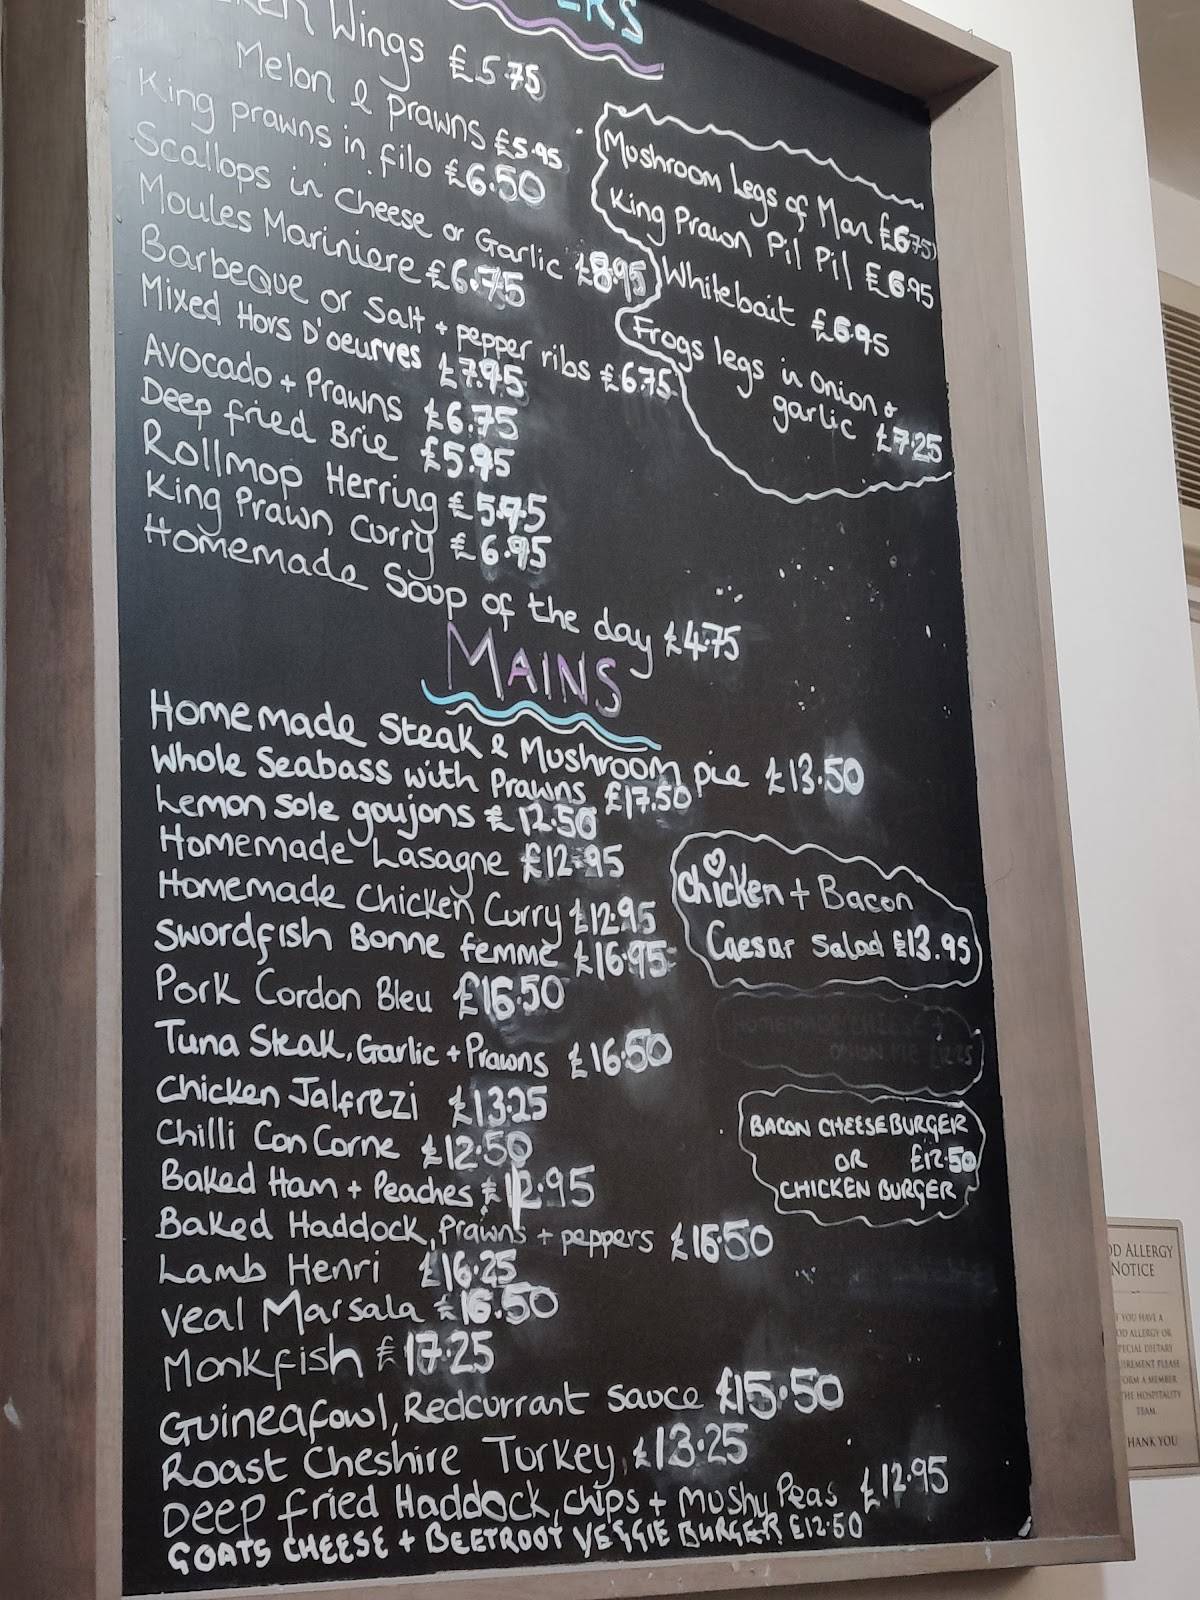 Wings £5.75
Melon & Prawns £5.95
King prawns in filo £6.50
Scallops in Cheese or Garlic £8.95
Moules Mariniere £6.75
Barbeque or Salt + pepper ribs £6.75
Mixed Hors D'oeurves £7.95
Avocado + Prawns £6.75
Deep fried Brie £5.95
Rollmop Herring £5.75
King Prawn Curry £6.95
Homemade Soup of the day £4.75
Mushroom Legs of Man £6.75
King Prawn Pil Pil £6.95
Whitebait £6.95
Frogs legs in Onion &
garlic £7.25
MAINS
Homemade Steak & Mushroom pie £13.50
Whole Seabass with Prawns £17.50
Lemon sole goujons £12.50
Homemade Lasagne £12.95
Homemade Chicken Curry £12.95
Swordfish Bonne femme £16.95
Pork Cordon Bleu £16.50
Tuna Steak, Garlic + Prawns £16.50
Chicken Jalfrezi £13.25
Chilli Con Carne £12.50
Baked Ham + Peaches £12.95
Baked Haddock, Prawns + peppers £16.50
Lamb Henri £16.25
Veal Marsala £16.50
Monkfish £17.25
Guineafowl, Redcurrant sauce £15.50
Roast Cheshire Turkey £13.25
Deep fried Haddock, chips + Mushy Peas £12.95
GOATS CHEESE + BEETROOT VEGGIE BURGER £12.50
Chicken + Bacon
Caesar Salad £13.95
BACON CHEESEBURGER
OR £12.50
CHICKEN BURGER
ALLERGY
NOTICE
YOU HAVE A
ALLERGY OR
DIETARY
PLEASE
A MEMBER
HOSPITALITY
TEAM.
YOU